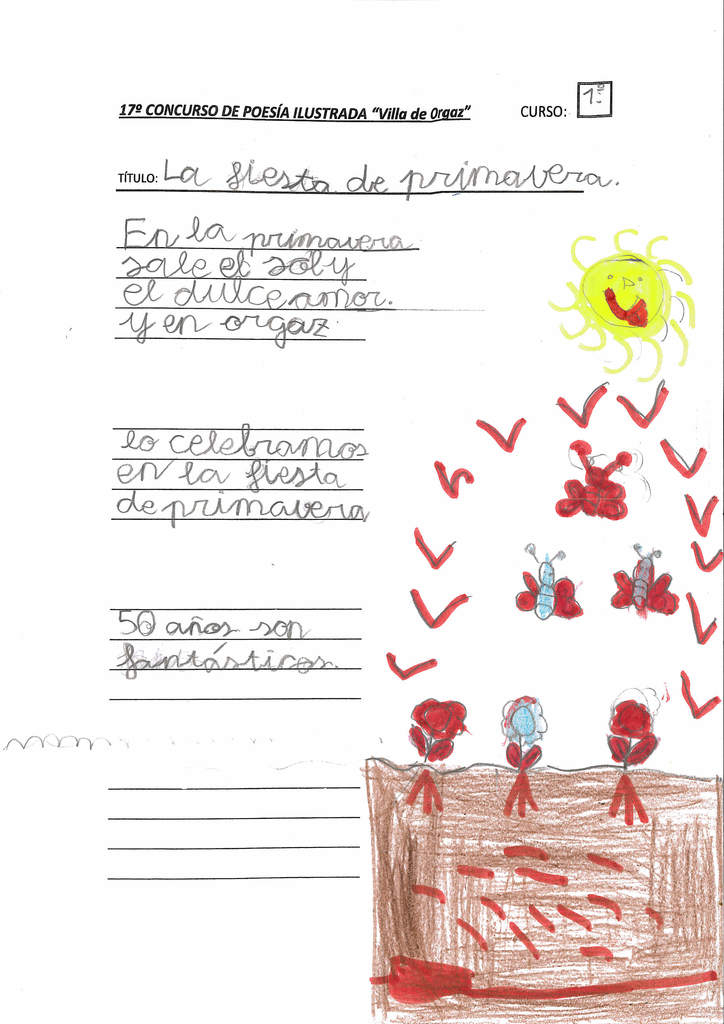 17º CONCURSO DE POESÍA ILUSTRADA “Villa de Orgaz” CURSO: 1º
TÍTULO: La fiesta de primavera.
En la primavera
sale el sol y
el dulce amor.
y en orgaz
lo celebramos
en la fiesta
de primavera
50 años son
fantásticos.